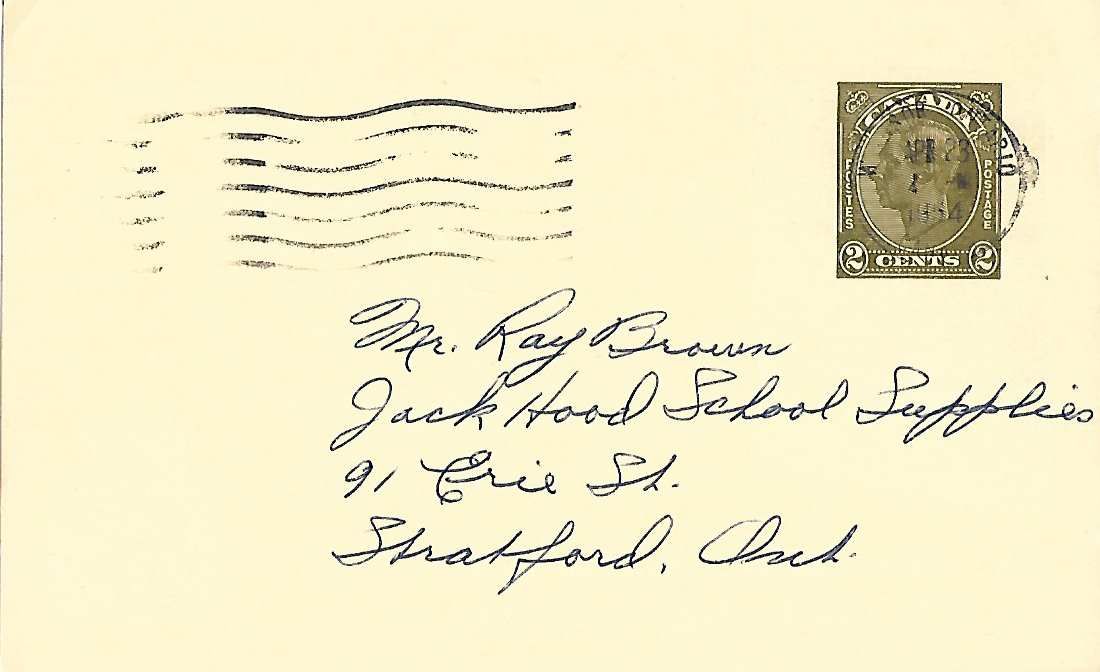 CANADA
POSTES
POSTAGE
2 CENTS 2
APR 23
1954
Mr. Ray Brown
Jack Hood School Supplies
91 Erie St.
Stratford, Ont.